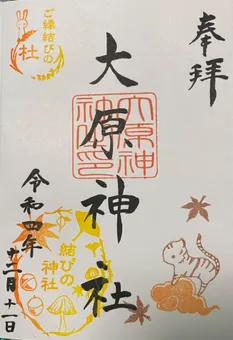 奉拝
ご縁結びの
社
大原神社
大原神
社之印
結びの
神社
令和四年
十二月十一日